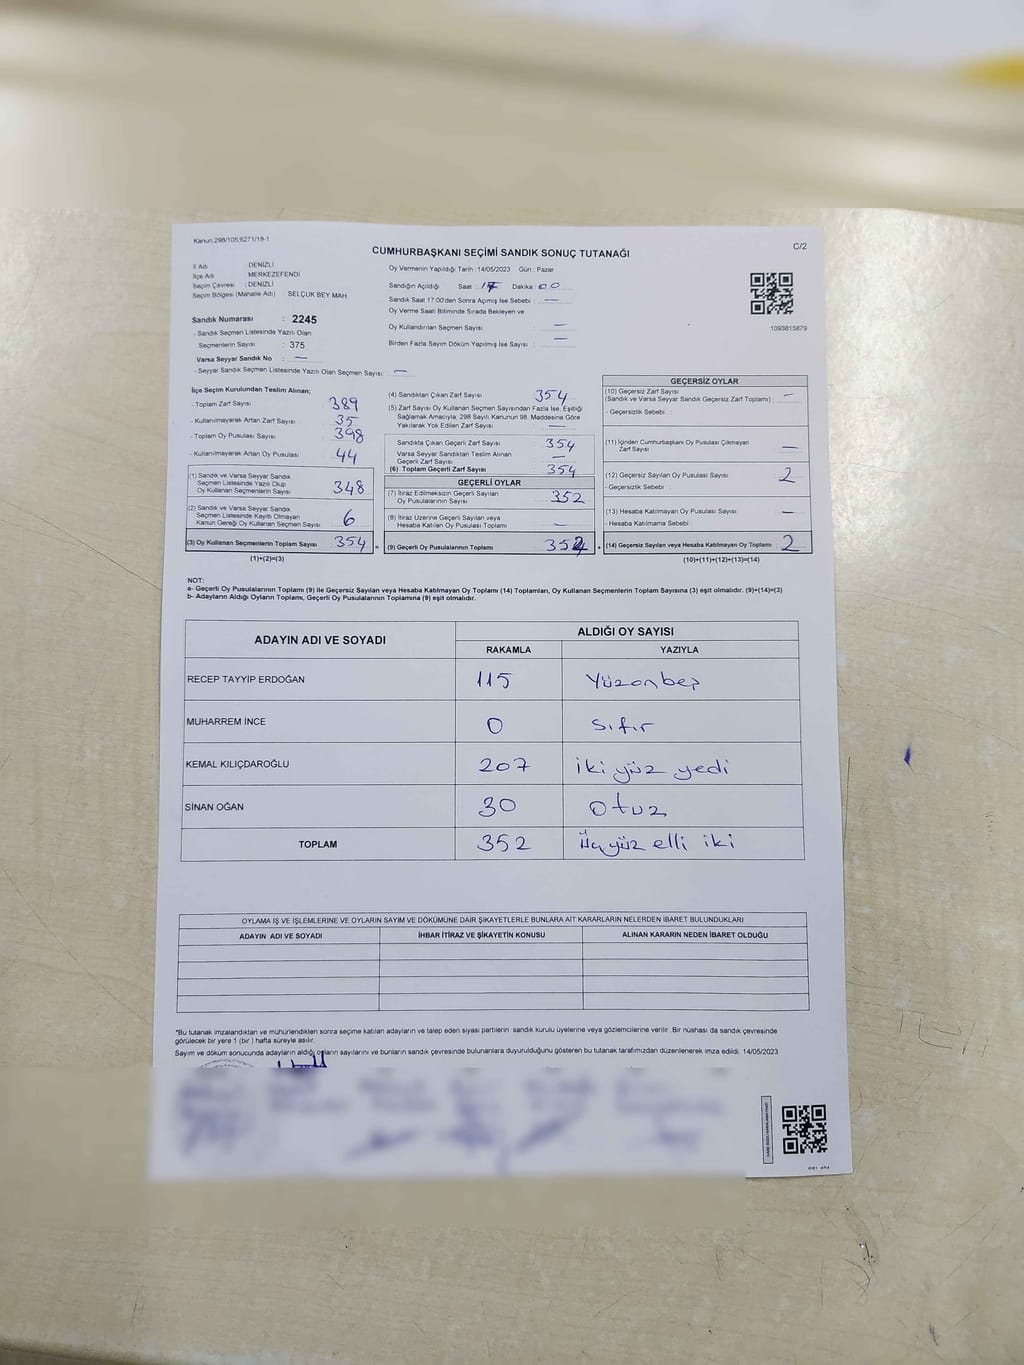 Kanun:298/105;6271/18-1
C/2
CUMHURBAŞKANI SEÇİMİ SANDIK SONUÇ TUTANAĞI
İl Adı : DENİZLİ
İlçe Adı : MERKEZEFENDİ
Seçim Çevresi : DENİZLİ
Seçim Bölgesi (Mahalle Adı) : SELÇUK BEY MAH.
Sandık Numarası : 2245
- Sandık Seçmen Listesinde Yazılı Olan
Seçmenlerin Sayısı : 375
Varsa Seyyar Sandık No : —
- Seyyar Sandık Listesinde Yazılı Olan Seçmen Sayısı : —
Oy Vermenin Yapıldığı Tarih : 14/05/2023 Gün : Pazar
Sandığın Açıldığı Saat : 17 Dakika : 00
Sandık Saat 17.00'den Sonra Açılmış İse Sebebi : —
Oy Verme Saati Bitiminde Sırada Bekleyen ve
Oy Kullandırılan Seçmen Sayısı : —
Birden Fazla Sayım Döküm Yapılmış İse Sayısı : —
1093815879
İlçe Seçim Kurulundan Teslim Alınan;
- Toplam Zarf Sayısı : 389
- Kullanılmayarak Artan Zarf Sayısı : 35
- Toplam Oy Pusulası Sayısı : 398
- Kullanılmayarak Artan Oy Pusulası : 44
(1) Sandık ve Varsa Seyyar Sandık
Seçmen Listesinde Yazılı Olup
Oy Kullanan Seçmenlerin Sayısı : 348
(2) Sandık ve Varsa Seyyar Sandık
Seçmen Listesinde Kayıtlı Olmayan
Kanun Gereği Oy Kullanan Seçmen Sayısı : 6
(3) Oy Kullanan Seçmenlerin Toplam Sayısı : 354
(1)+(2)=(3)
(4) Sandıktan Çıkan Zarf Sayısı : 354
(5) Zarf Sayısı Oy Kullanan Seçmen Sayısından Fazla İse, Eşitliği
Sağlamak Amacıyla; 298 Sayılı Kanunun 98. Maddesine Göre
Yakılarak Yok Edilen Zarf Sayısı : —
Sandıkta Çıkan Geçerli Zarf Sayısı : 354
Varsa Seyyar Sandıktan Teslim Alınan
Geçerli Zarf Sayısı : —
(6) Toplam Geçerli Zarf Sayısı : 354
GEÇERLİ OYLAR
(7) İtiraz Edilmeksizin Geçerli Sayılan
Oy Pusulalarının Sayısı : 352
(8) İtiraz Üzerine Geçerli Sayılan veya
Hesaba Katılan Oy Pusulası Toplamı : —
= (9) Geçerli Oy Pusulalarının Toplamı : 352 +
GEÇERSİZ OYLAR
(10) Geçersiz Zarf Sayısı
(Sandık ve Varsa Seyyar Sandık Geçersiz Zarf Toplamı) : —
- Geçersizlik Sebebi :
(11) İçinden Cumhurbaşkanı Oy Pusulası Çıkmayan
Zarf Sayısı : —
(12) Geçersiz Sayılan Oy Pusulası Sayısı : 2
- Geçersizlik Sebebi :
(13) Hesaba Katılmayan Oy Pusulası Sayısı : —
- Hesaba Katılmama Sebebi :
(14) Geçersiz Sayılan veya Hesaba Katılmayan Oy Toplamı : 2
(10)+(11)+(12)+(13)=(14)
NOT:
a- Geçerli Oy Pusulalarının Toplamı (9) ile Geçersiz Sayılan veya Hesaba Katılmayan Oy Toplamı (14) Toplamları, Oy Kullanan Seçmenlerin Toplam Sayısına (3) eşit olmalıdır. (9)+(14)=(3)
b- Adayların Aldığı Oyların Toplamı, Geçerli Oy Pusulalarının Toplamına (9) eşit olmalıdır.
ADAYIN ADI VE SOYADI ALDIĞI OY SAYISI
RAKAMLA YAZIYLA
RECEP TAYYİP ERDOĞAN 115 Yüzonbeş
MUHARREM İNCE 0 Sıfır
KEMAL KILIÇDAROĞLU 207 iki yüz yedi
SİNAN OĞAN 30 Otuz
TOPLAM 352 Üçyüz elli iki
OYLAMA İŞ VE İŞLEMLERİNE VE OYLARIN SAYIM VE DÖKÜMÜNE DAİR ŞİKAYETLERLE BUNLARA AİT KARARLARIN NELERDEN İBARET BULUNDUKLARI
ADAYIN ADI VE SOYADI İHBAR İTİRAZ VE ŞİKAYETİN KONUSU ALINAN KARARIN NEDEN İBARET OLDUĞU
*Bu tutanak imzalandıktan ve mühürlendikten sonra seçime katılan adayların ve talep eden siyasi partilerin sandık kurulu üyelerine veya gözlemcilerine verilir. Bir nüshası da sandık çevresinde
görülecek bir yere 1 (bir ) hafta süreyle asılır.
Sayım ve döküm sonucunda adayların aldığı oyların sayılarını ve bunların sandık çevresinde bulunanlara duyurulduğunu gösteren bu tutanak tarafımızdan düzenlenerek imza edildi. 14/05/2023